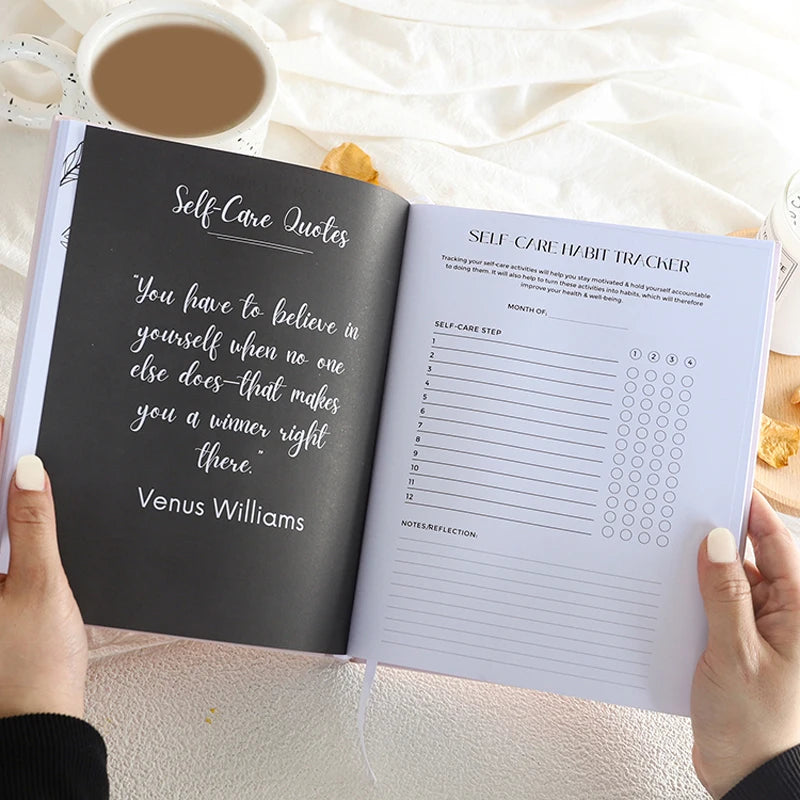 Self-Care Quotes
"You have to believe in
yourself when no one
else does—that makes
you a winner right
there."
Venus Williams
SELF-CARE HABIT TRACKER
Tracking your self-care activities will help you stay motivated & hold yourself accountable
to doing them. It will also help to turn these activities into habits, which will therefore
improve your health & well-being.
MONTH OF:
SELF-CARE STEP
1 2 3 4
1
2
3
4
5
6
7
8
9
10
11
12
NOTES/REFLECTION: